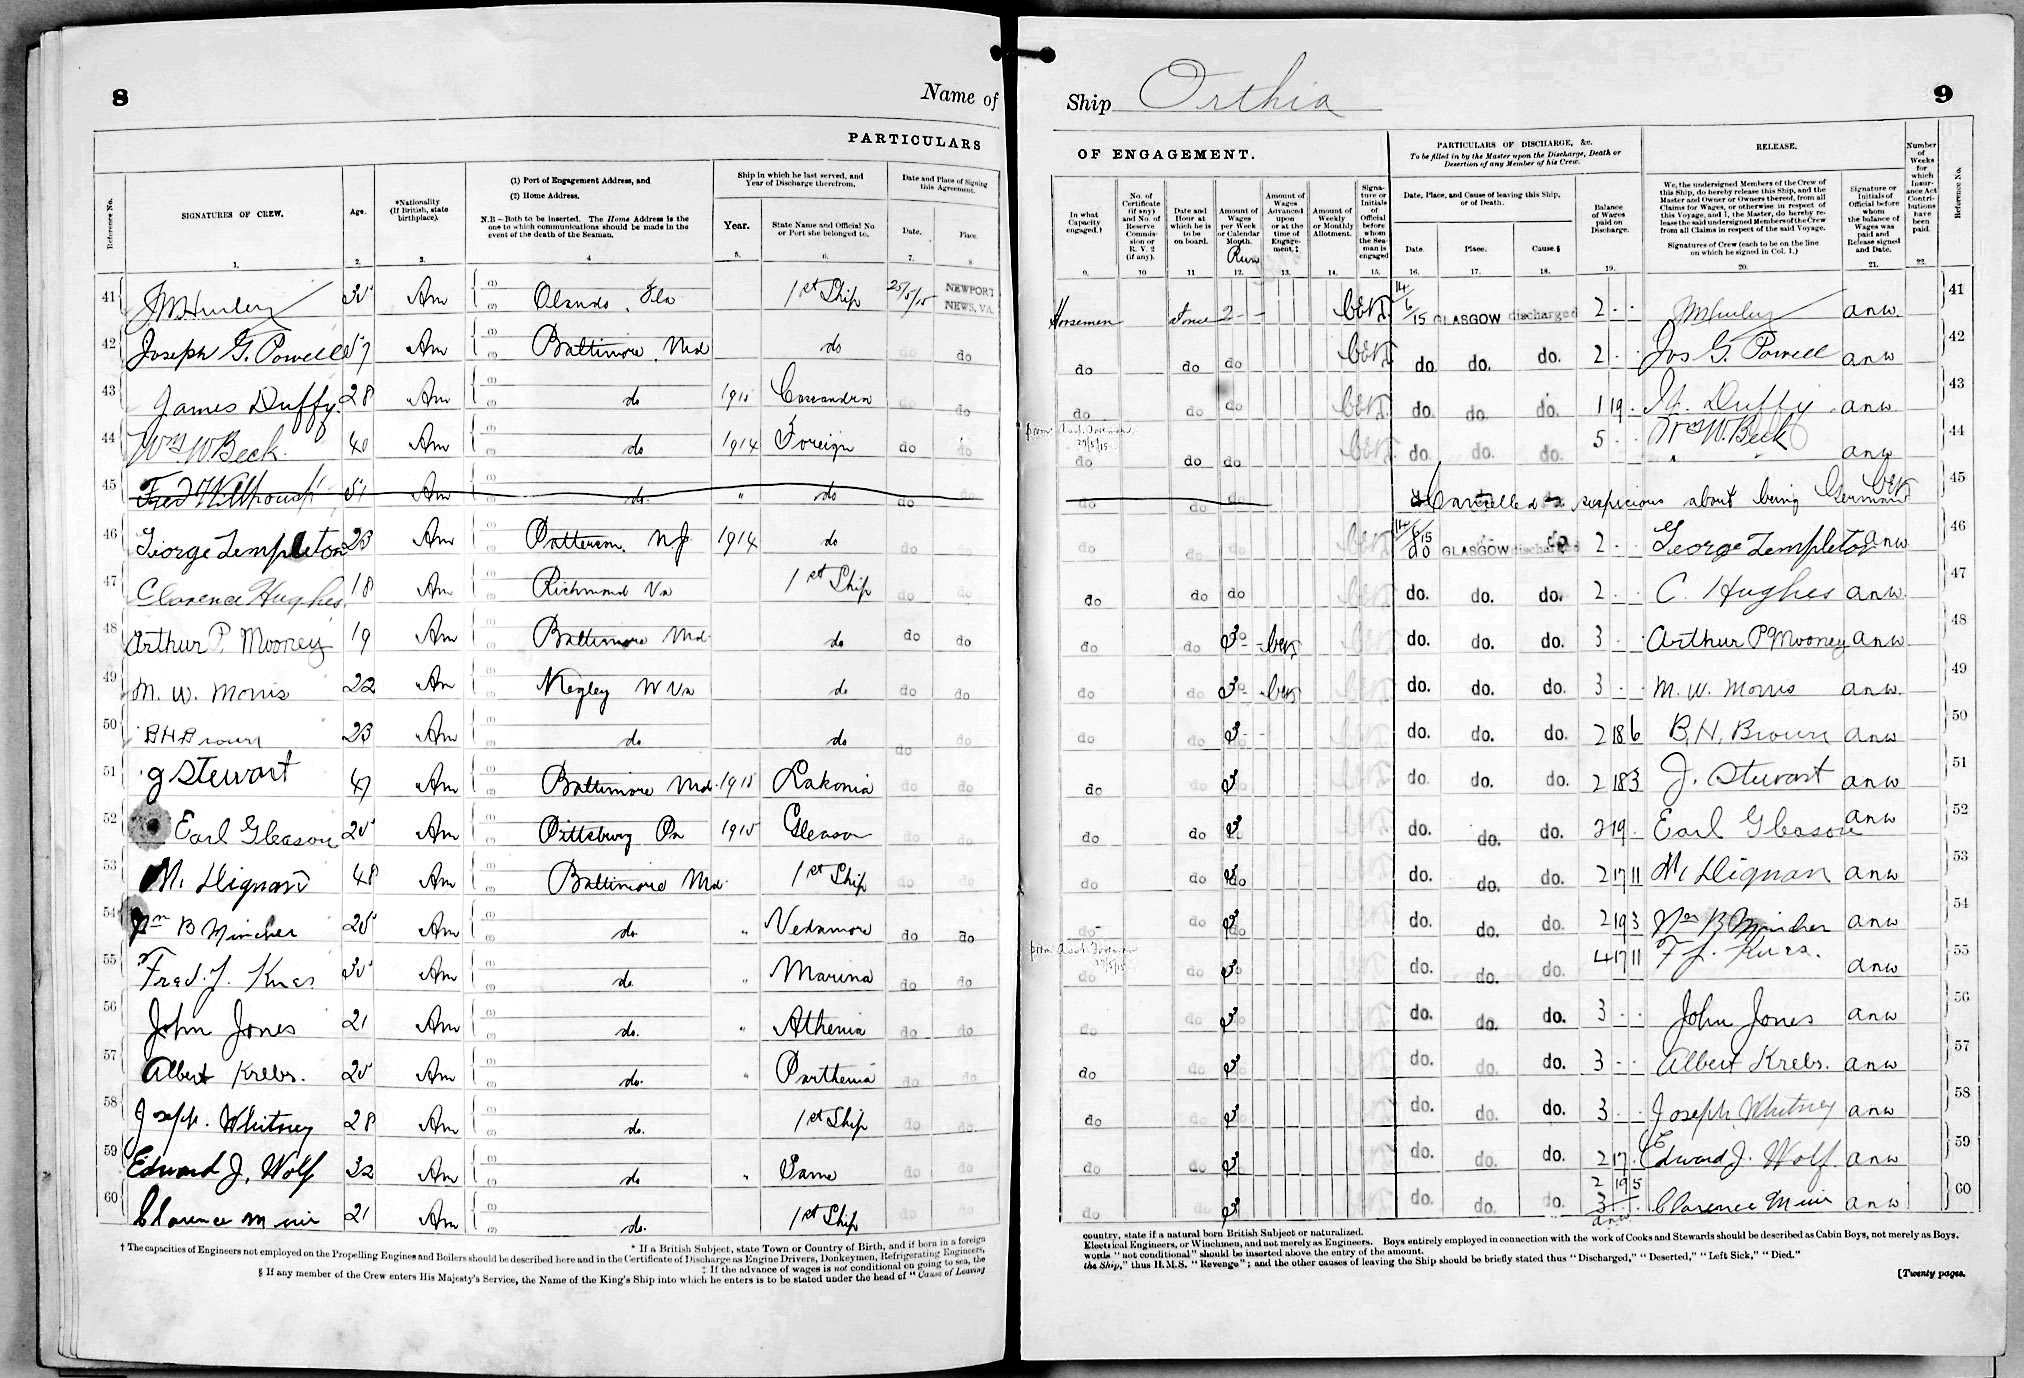 8
Name of
PARTICULARS
Reference No.
SIGNATURES OF CREW.
Age.
*Nationality (If British, state birthplace).
(1) Port of Engagement Address, and
(2) Home Address.
N.B—Both to be inserted. The Home Address is the one to which communications should be made in the event of the death of the Seaman.
Ship in which he last served, and Year of Discharge therefrom.
Year.
State Name and Official No. or Port she belonged to.
Date and Place of Signing this Agreement.
Date.
Place.
1. 2. 3. 4 5. 6. 7. 8
41 JM Hurley Am Olando, Fla 1st Ship 25/5/15 NEWPORT NEWS, VA.
42 Joseph G. Powell Am Baltimore, Md do do do
43 James Duffy. 28 Am do 1915 Cassandra do do
44 Wm W Beck. 40 Am do 1914 Foreign do do
45 Fred Am do. " do do
46 George Templeton 23 Am Patterson, NJ 1914 do do do
47 Clarence Hughes. 18 Am Richmond Va 1st Ship do do
48 Arthur P. Mooney 19 Am Baltimore Md. do do do
49 M. W. Morris 22 Am Kegley W Va do do do
50 B H Brown 23 Am do do do do
51 J Stewart 47 Am Baltimore Md. 1915 Lakonia do do
52 Earl Gleason 25 Am Pittsburg Pa 1915 Gleason do do
53 M. Dignan 48 Am Baltimore Md. 1st Ship do do
54 Wm B Mincher 25 Am do. " Vedamore do do
55 Fred. J. Am do. " Marina do do
56 John Jones 21 Am do. " Athenia do do
57 Albert Krebs. 25 Am do. " Parthenia do do
58 Joseph. Whitney 28 Am do. 1st Ship do do
59 Edward J. Wolf 32 Am do " Same do do
60 Clarence Muir 21 Am do. 1st Ship do do
* If a British Subject, state Town or Country of Birth, and if born in a foreign
† The capacities of Engineers not employed on the Propelling Engines and Boilers should be described here and in the Certificate of Discharge as Engine Drivers, Donkeymen, Refrigerating Engineers,
‡ If the advance of wages is not conditional on going to sea, the
§ If any member of the Crew enters His Majesty's Service, the Name of the King's Ship into which he enters is to be stated under the head of "Cause of Leaving
Ship Orthia
9
OF ENGAGEMENT.
PARTICULARS OF DISCHARGE, &c.
To be filled in by the Master upon the Discharge, Death or Desertion of any Member of his Crew.
RELEASE.
Number of Weeks for which Insurance Act Contributions have been paid.
Reference No.
In what Capacity engaged.†
No. of Certificate (if any) and No. of Reserve Commission or R. V. 2 (if any).
Date and Hour at which he is to be on board.
Amount of Wages per Week or Calendar Month.
Run
Amount of Wages Advanced upon or at the time of Engagement.‡
Amount of Weekly or Monthly Allotment.
Signature or Initials of Official before whom the Seaman is engaged
Date, Place, and Cause of leaving this Ship, or of Death.
Date.
Place.
Cause.§
Balance of Wages paid on Discharge.
We, the undersigned Members of the Crew of this Ship, do hereby release this Ship, and the Master and Owner or Owners thereof, from all Claims for Wages, or otherwise in respect of this Voyage, and I, the Master, do hereby release the said undersigned Members of the Crew from all Claims in respect of the said Voyage.
Signatures of Crew (each to be on the line on which he signed in Col. 1.)
Signature or Initials of Official before whom the balance of Wages was paid and Release signed and Date.
9. 10 11 12. 13. 14. 15. 16. 17. 18. 19. 20. 21. 22.
Horsemen 2 - - 14/6/15 GLASGOW discharged 2 - - JM Hurley anw. 41
do do do do. do. do. 2 - - Jos G. Powell anw 42
do do do do. do. do. 1 19 - Duffy. anw. 43
do do do do. do. do. 5 - - Wm W. Beck anw 44
do do do Cancelled suspicious about being German 45
do do do 14/6/15 do GLASGOW discharged do 2 - - George Templeton anw 46
do do do do. do. do. 2 - - C. Hughes anw. 47
do do 3 do. do. do. 3 - - Arthur P Mooney anw 48
do do 3 do. do. do. 3 - - M. W. Morris anw. 49
do do 3 do. do. do. 2 18 6 B. H. Brown anw 50
do do 3 do. do. do. 2 18 3 J. Stewart anw 51
do do 3 do. do. do. 2 19 - Earl Gleason anw 52
do do 3 do. do. do. 2 17 11 M Dignan anw 53
do do 3 do. do. do. 2 19 3 Wm B Mincher anw 54
do do 3 do. do. do. 4 17 11 F J. anw 55
do do 3 do. do. do. 3 - - John Jones anw 56
do do 3 do. do. do. 3 - - Albert Krebs. anw 57
do do 3 do. do. do. 3 - - Joseph Whitney anw 58
do do 3 do. do. do. 2 17 - Edward J. Wolf. anw 59
do do 3 do. do. do. 2 19 5 3 - - anw Clarence Muir anw 60
country, state if a natural born British Subject or naturalized.
Electrical Engineers, or Winchmen, and not merely as Engineers. Boys entirely employed in connection with the work of Cooks and Stewards should be described as Cabin Boys, not merely as Boys.
words "not conditional" should be inserted above the entry of the amount.
the Ship," thus H.M.S. "Revenge"; and the other causes of leaving the Ship should be briefly stated thus "Discharged," "Deserted," "Left Sick," "Died."
[Twenty pages.